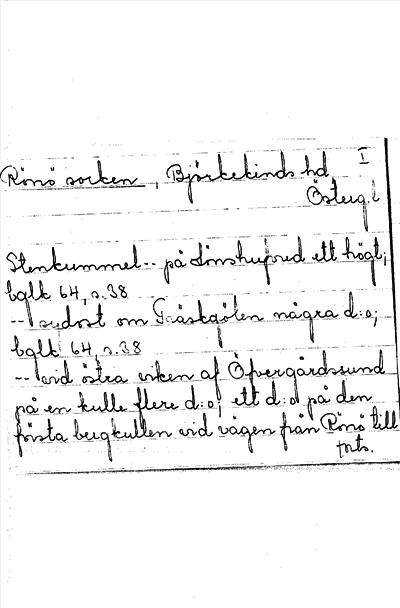 I
Rönö socken, Björkekinds hd,
Österg.l
Stenkummel -- på Lönshuvud ett högt;
bglk 64, s.38
-- sydost om Gråskgölen några d:o;
bglk 64, s.38
-- vid östra viken af Öfvergårdssund
på en kulle flere d:o; ett d:o på den
första bergkullen vid vägen från Rönö till
forts.